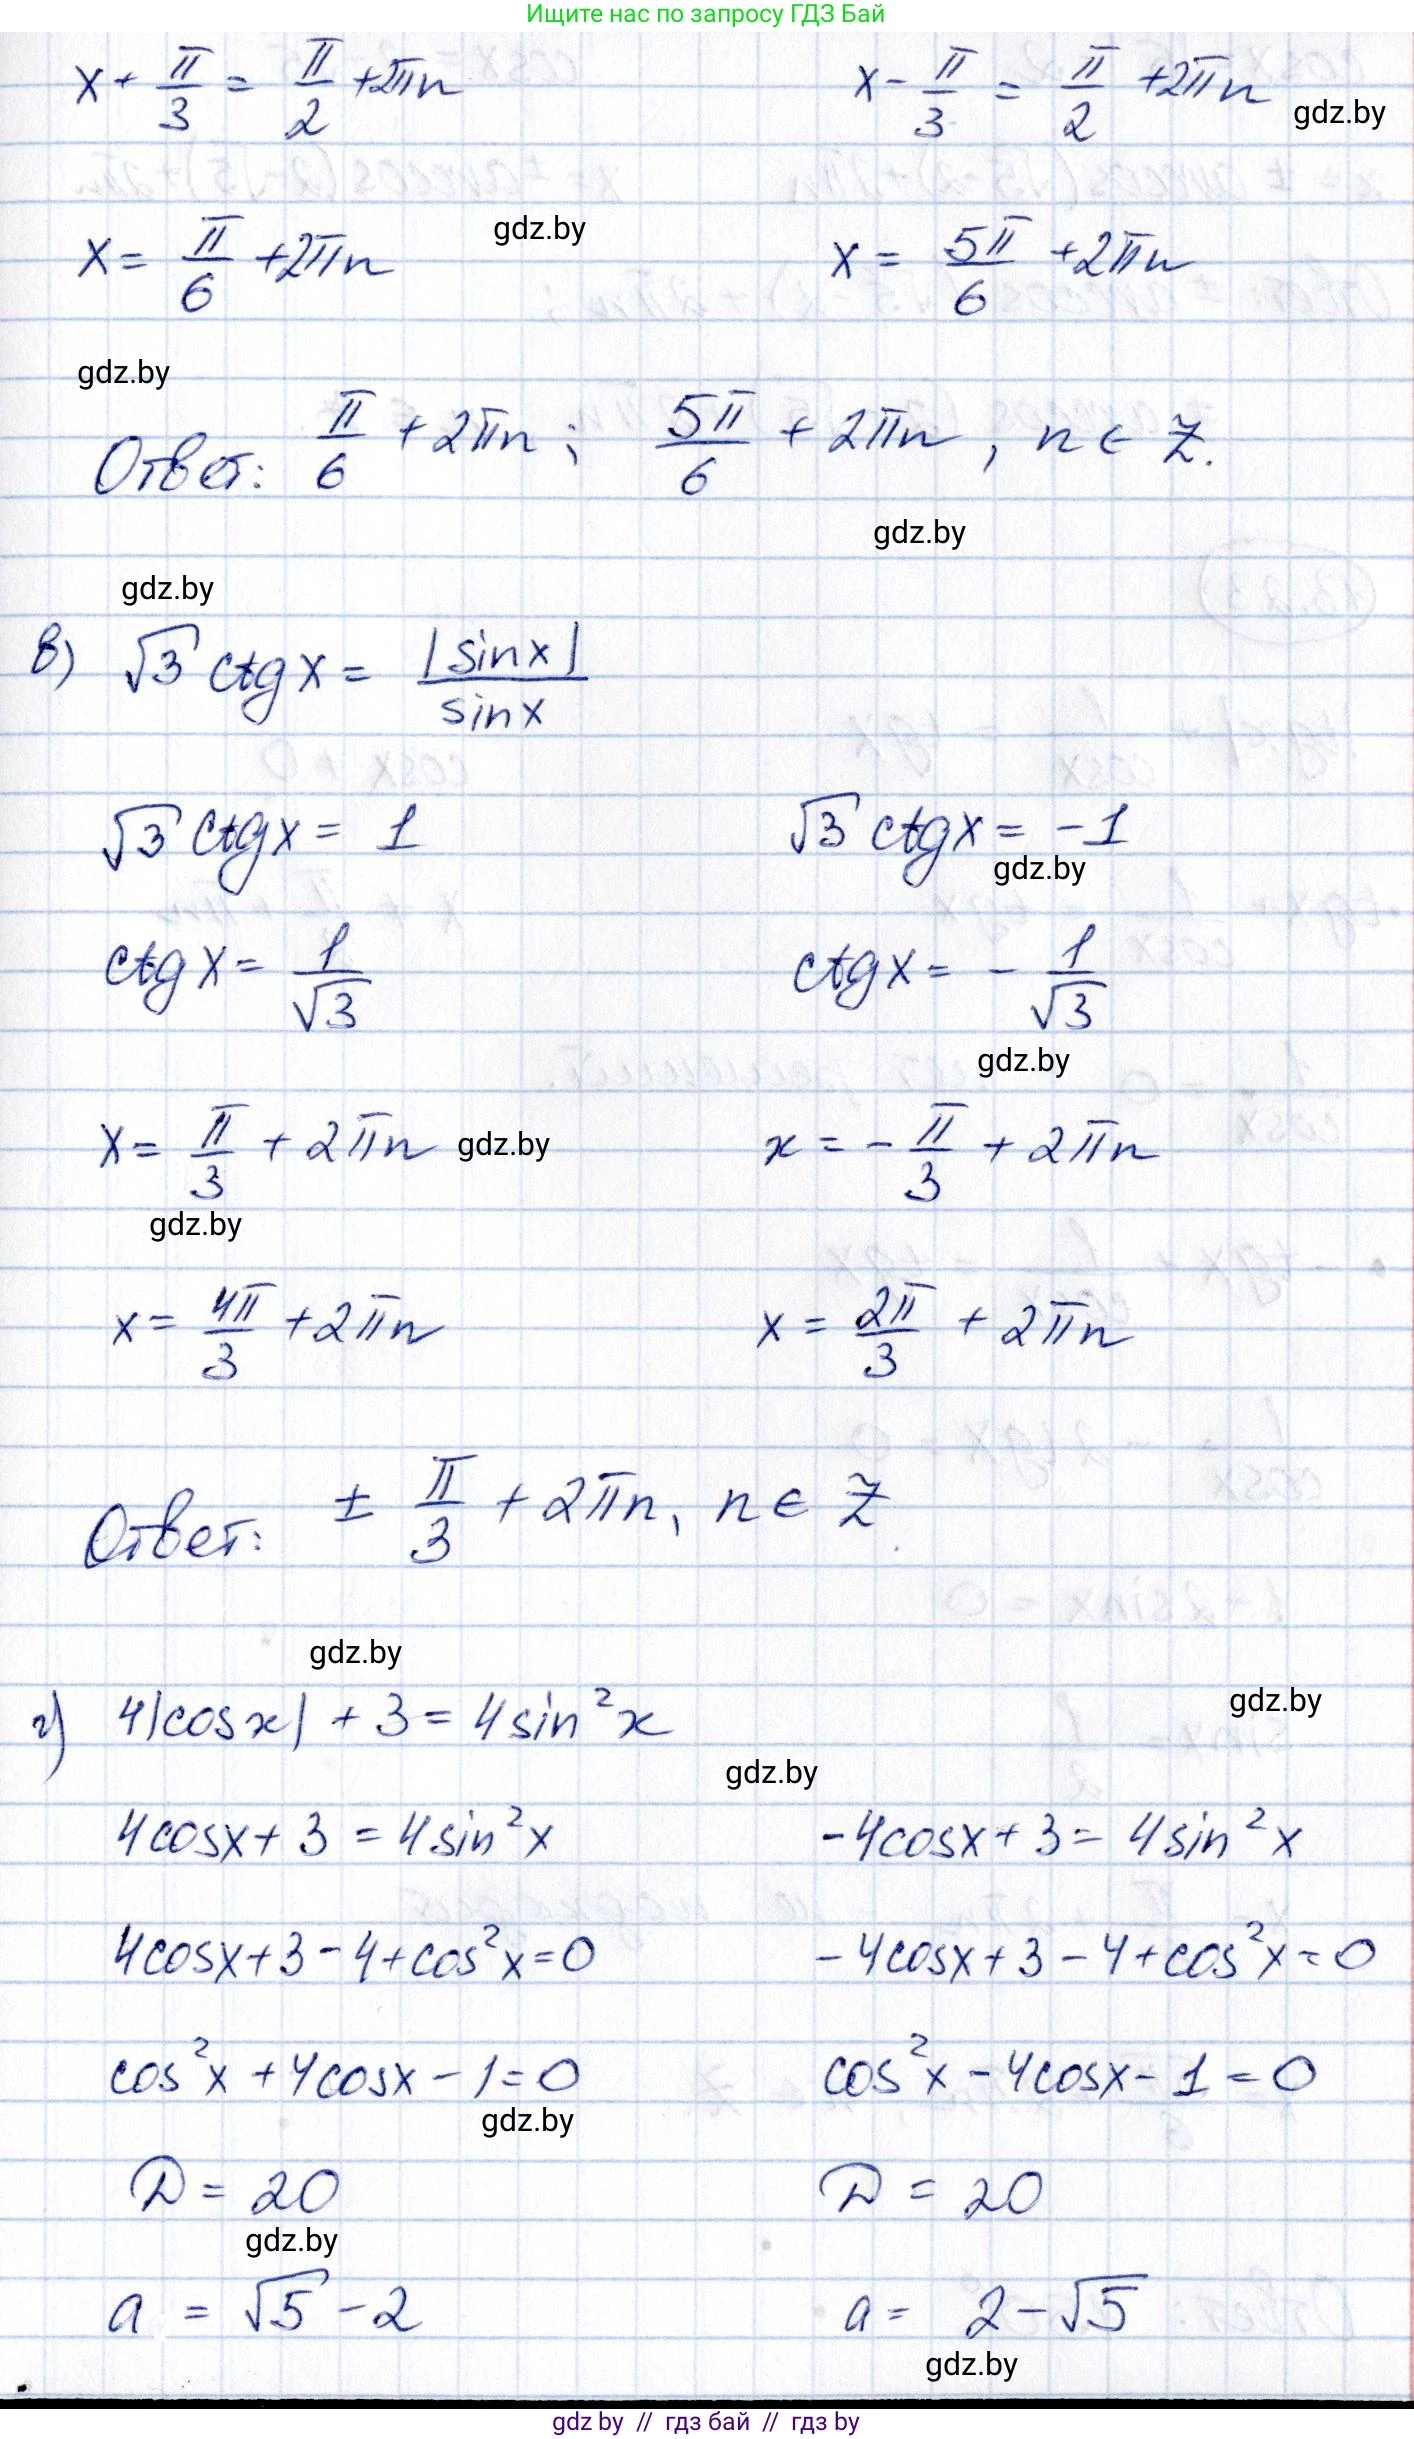 Ищите нас по запросу ГДЗ Бай
x + π/3 = π/2 + 2πn    x - π/3 = π/2 + 2πn
gdz.by
x = π/6 + 2πn    gdz.by    x = 5π/6 + 2πn
gdz.by
Ответ: π/6 + 2πn ; 5π/6 + 2πn , n ∈ Z.
gdz.by
gdz.by
в) √3 ctg x = |sin x| / sin x
√3 ctg x = 1    √3 ctg x = -1
gdz.by
ctg x = 1/√3    ctg x = - 1/√3
gdz.by
x = π/3 + 2πn    gdz.by    x = - π/3 + 2πn
gdz.by
x = 4π/3 + 2πn    x = 2π/3 + 2πn
Ответ: ± π/3 + 2πn, n ∈ Z
gdz.by
г) 4|cos x| + 3 = 4 sin²x    gdz.by
gdz.by
4cosx + 3 = 4sin²x    -4cosx + 3 = 4sin²x
4cosx + 3 - 4 + cos²x = 0    -4cosx + 3 - 4 + cos²x = 0
cos²x + 4cosx - 1 = 0    cos²x - 4cosx - 1 = 0
gdz.by
D = 20    D = 20
gdz.by
a = √5 - 2    a = 2 - √5
gdz.by
gdz by // гдз бай // гдз by